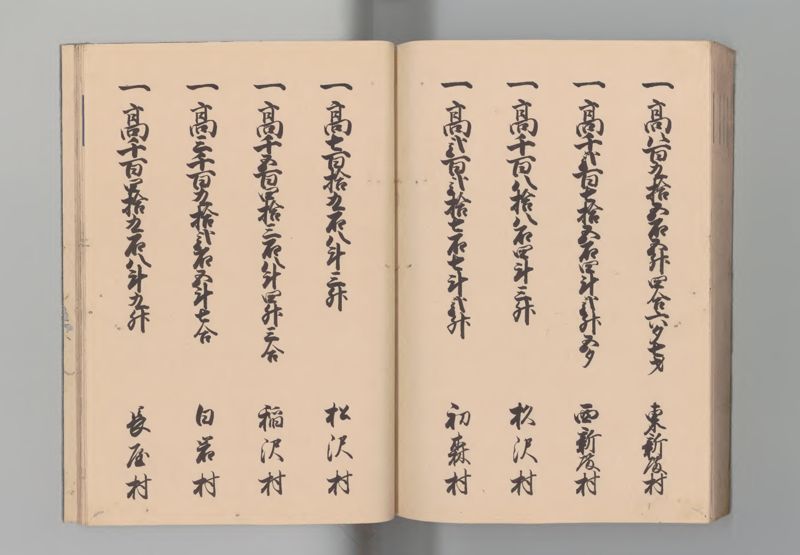 一 高八百九拾五石五升四合六勺七才 東新殿村
一 高千弐百七拾五石四斗弐升五夕 西新殿村
一 高千百八拾八石四斗三升 杉沢村
一 高弐百弐拾七石七斗弐升 初森村
一 高七百拾九石八斗三升 松沢村
一 高千五百四拾三石八斗四升三合 稲沢村
一 高三千百九拾弐石五斗七合 白岩村
一 高千百四拾九石八斗九升 長屋村